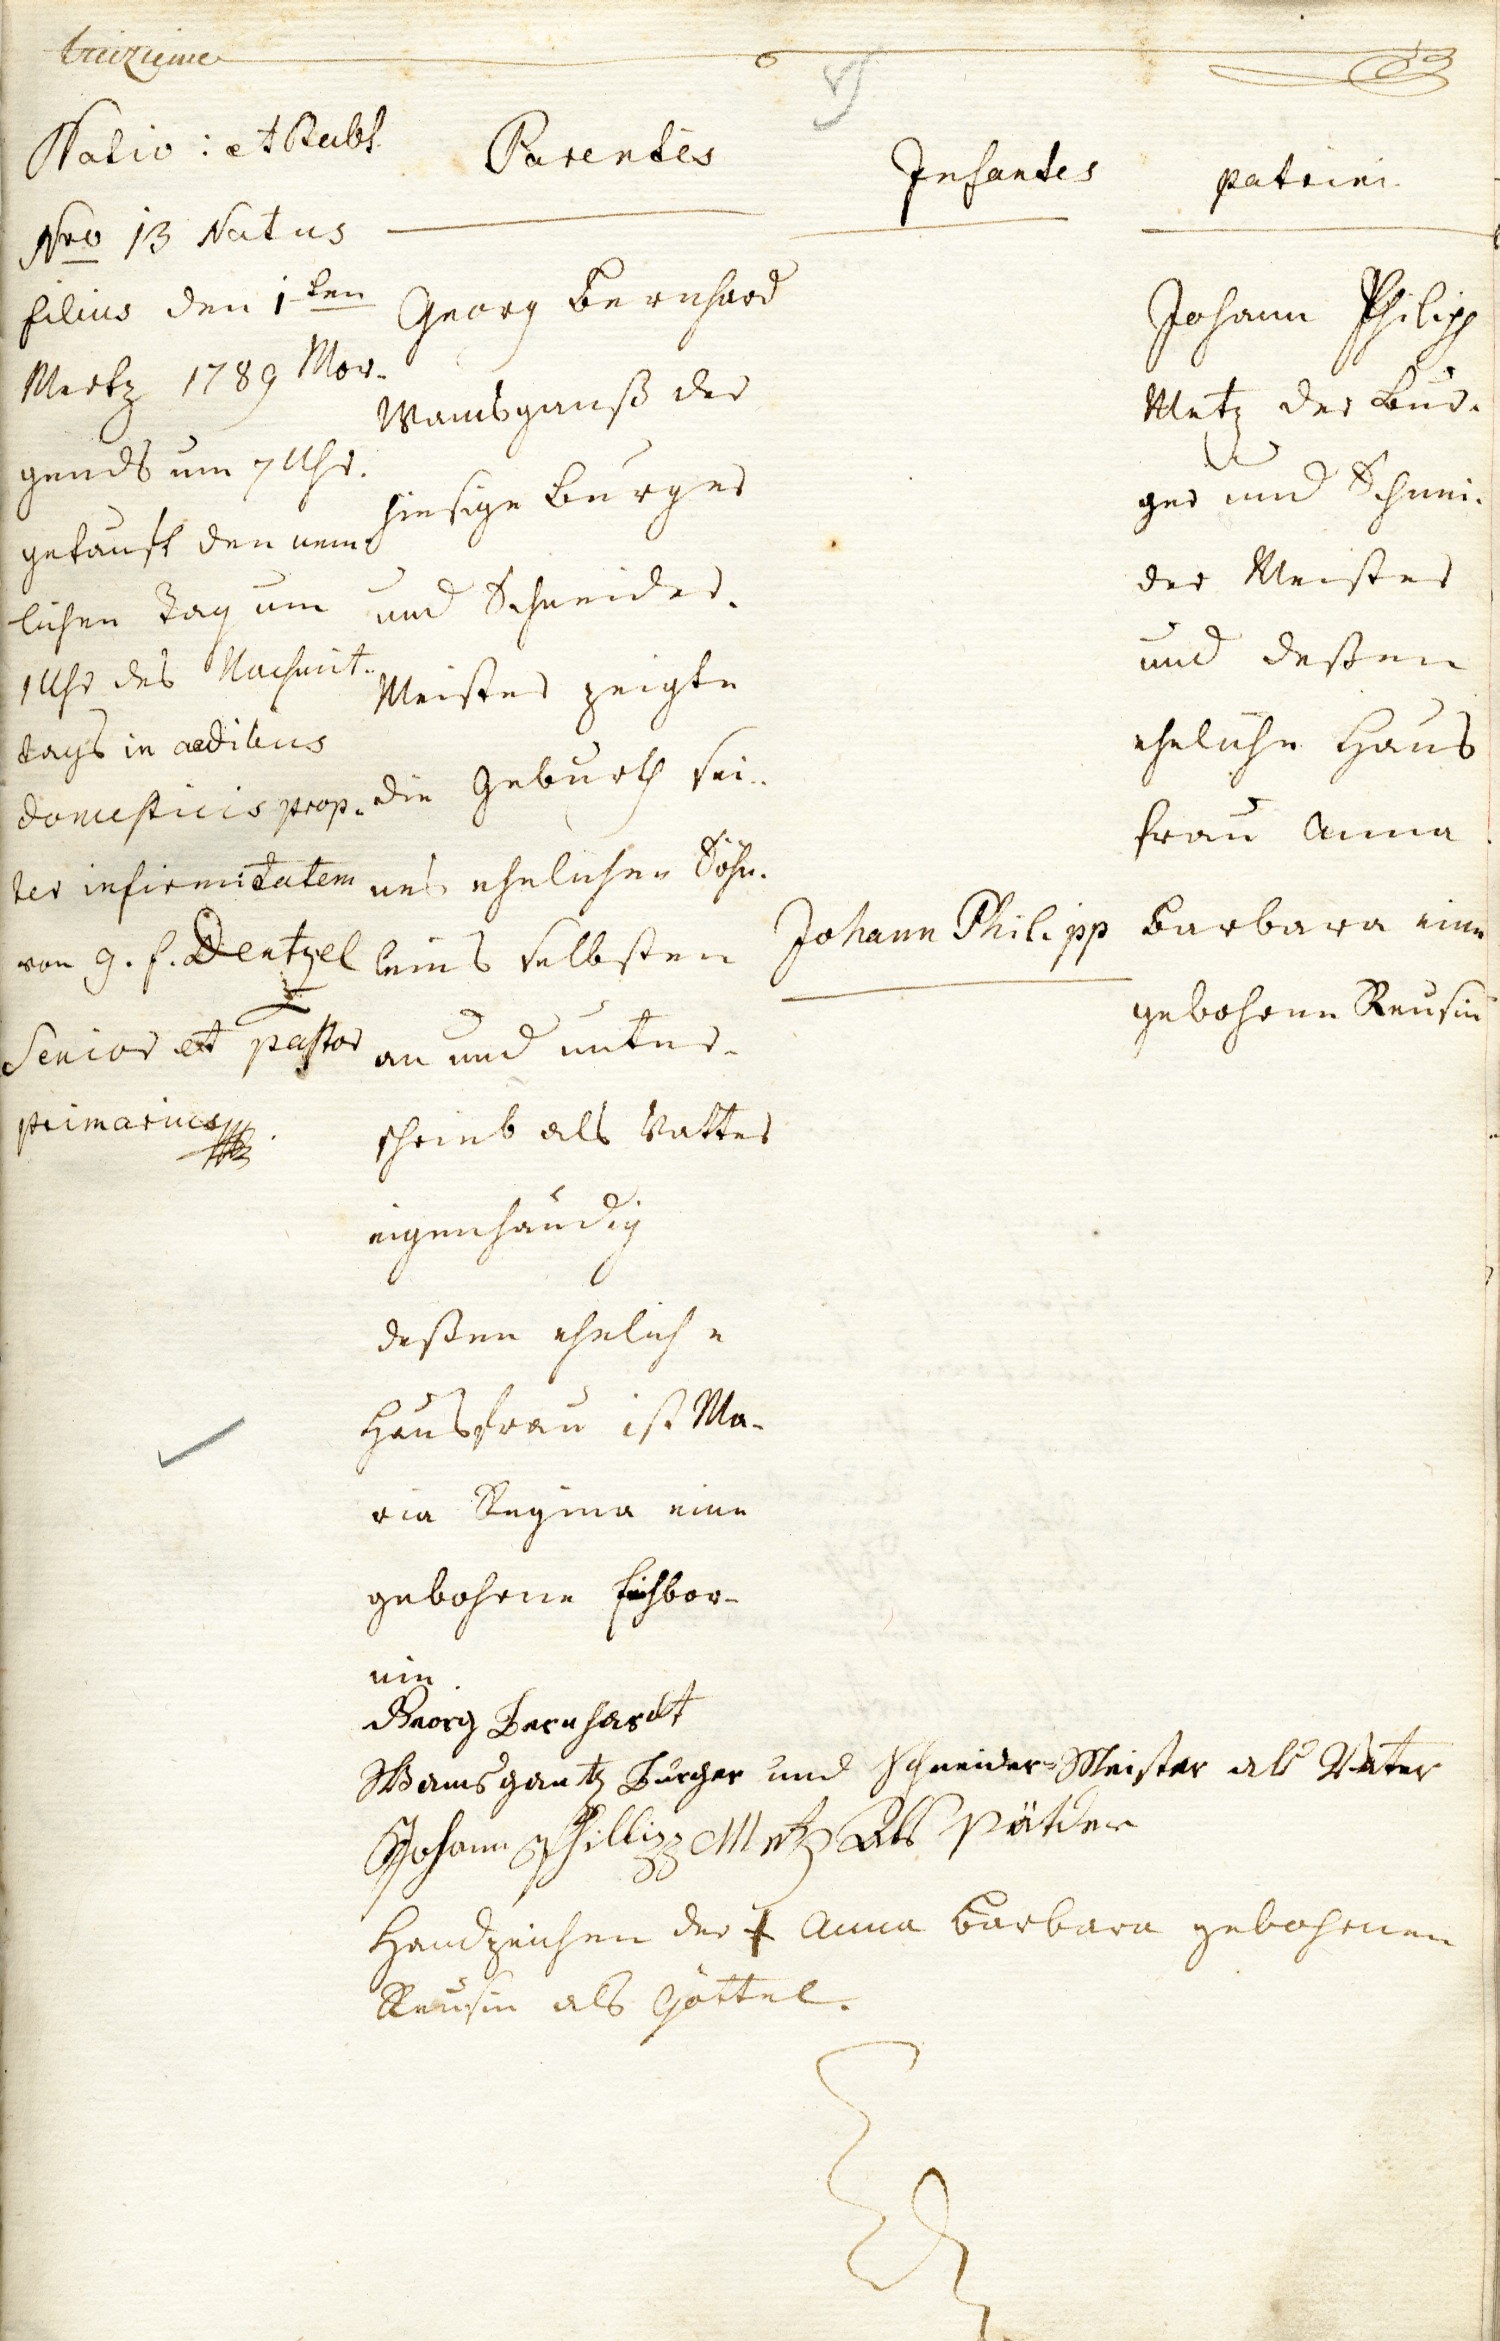 treizieme
Natio: et Babt.
Nro 13 Natus
filius den 1ten
Mertz 1789 Mor-
gends um 7 Uhr.
getauft den nem-
lichen Tag um
1 Uhr des Nachmit-
tags in aedibus
domesticis prop-
ter infirmitatem
von g. f. Dentzel
Senior et pastor
primarius
Parentes
Georg Bernhard
Wamsganß der
hiesige Burger
und Schneider-
Meister zeigte
die Geburth sei-
nes ehelichen Söhn-
leins selbsten
an und unter-
schrieb als Vatter
eigenhändig
deßen eheliche
Hausfrau ist Ma-
ria Regina eine
gebohrne Eichbor-
nin
Infantes
Johann Philipp
patrini
Johann Philipp
Metz der Bur-
ger und Schnei-
der Meister
und deßen
eheliche Haus
frau Anna
Barbara eine
gebohrne Reusin
Georg Bernhardt
Wamsgantz Burger und Schneider-Meister als Vater
Johann Phillipp Metz Als Pätder
Handzeichen der + Anna Barbara gebohrnen
Reusin als Göttel.